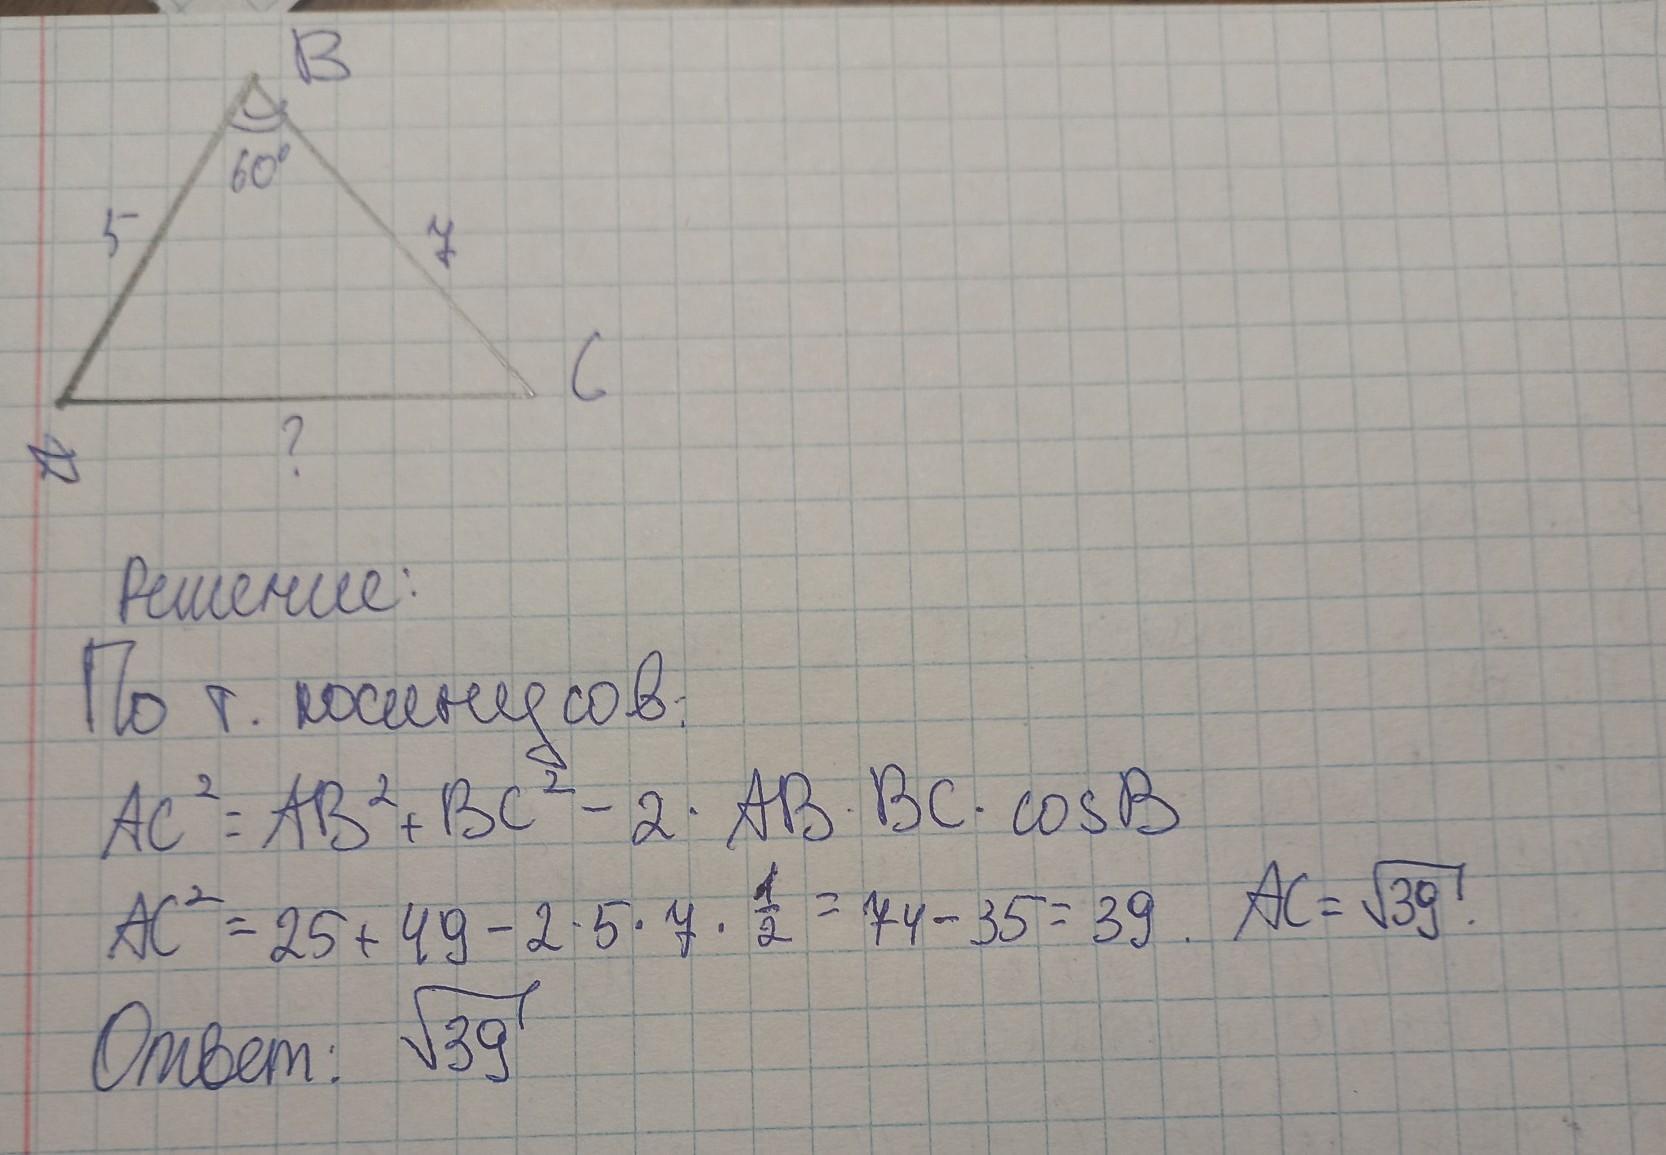 B
60°
5
7
C
A
?
Решение:
По т. косинусов:
AC² = AB² + BC² - 2 · AB · BC · cosB
AC² = 25 + 49 - 2 · 5 · 7 · 1/2 = 74 - 35 = 39. AC = √39.
Ответ: √39